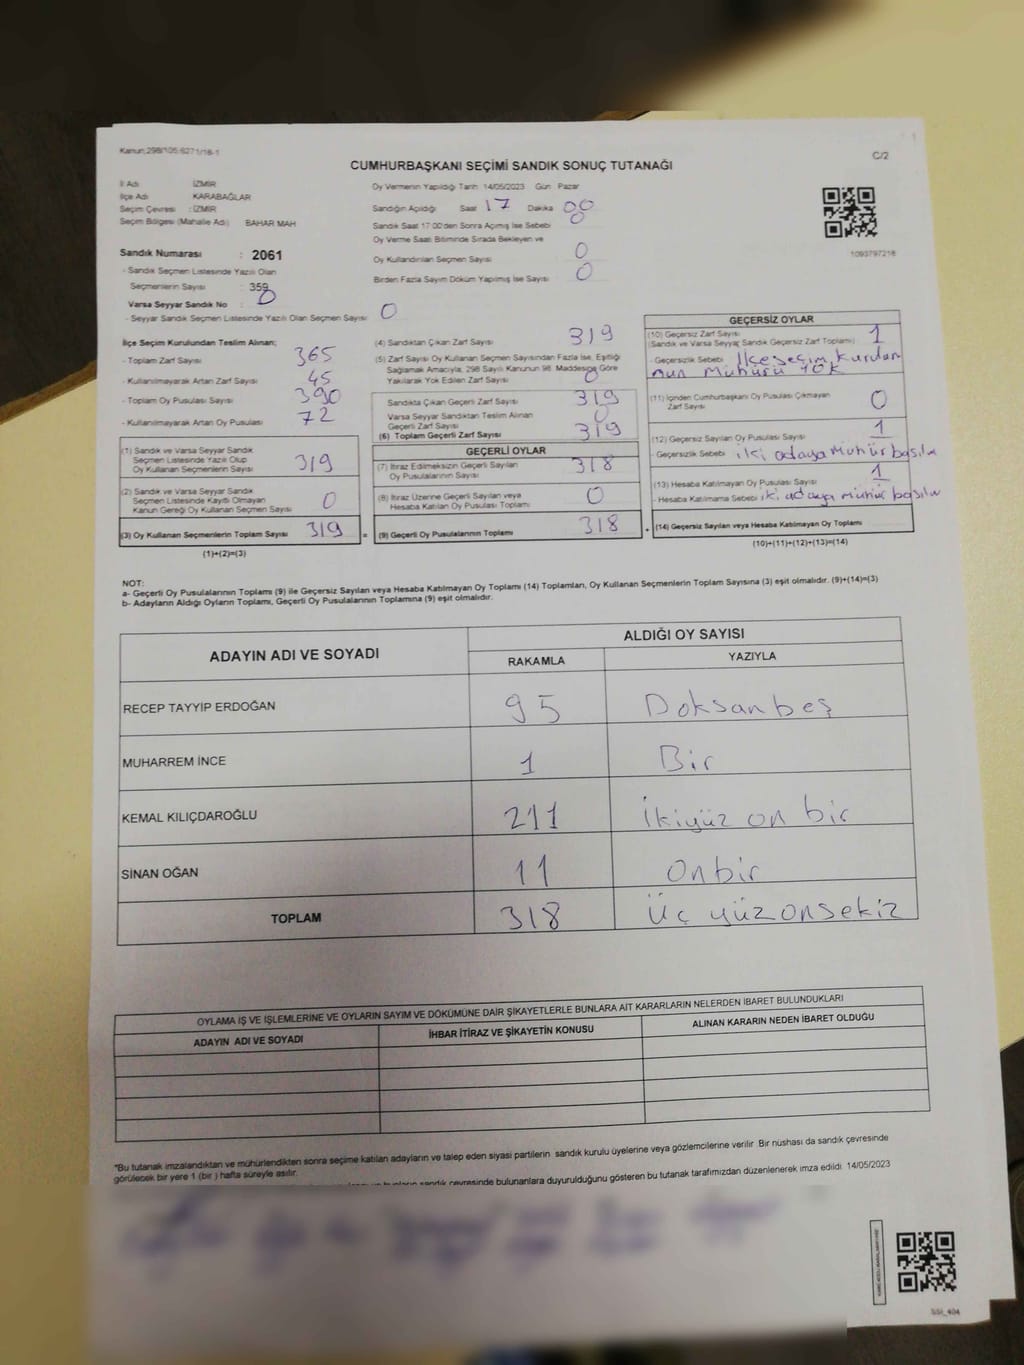 Kanun:298/105:6271/18-1
C/2
CUMHURBAŞKANI SEÇİMİ SANDIK SONUÇ TUTANAĞI
İl Adı : İZMİR
İlçe Adı : KARABAĞLAR
Seçim Çevresi : İZMİR
Seçim Bölgesi (Mahalle Adı) BAHAR MAH
Sandık Numarası : 2061
- Sandık Seçmen Listesinde Yazılı Olan
Seçmenlerin Sayısı : 359
Varsa Seyyar Sandık No : 0
- Seyyar Sandık Seçmen Listesinde Yazılı Olan Seçmen Sayısı 0
Oy Vermenin Yapıldığı Tarih 14/05/2023 Gün Pazar
Sandığın Açıldığı Saat 17 Dakika 00
Sandık Saat 17:00'den Sonra Açılmış İse Sebebi 0
Oy Verme Saati Bitiminde Sırada Bekleyen ve
Oy Kullandırılan Seçmen Sayısı 0
Birden Fazla Sayım Döküm Yapılmış İse Sayısı 0
1093797218
İlçe Seçim Kurulundan Teslim Alınan;
- Toplam Zarf Sayısı 365
- Kullanılmayarak Artan Zarf Sayısı 45
- Toplam Oy Pusulası Sayısı 390
- Kullanılmayarak Artan Oy Pusulası 72
(1) Sandık ve Varsa Seyyar Sandık
Seçmen Listesinde Yazılı Olup
Oy Kullanan Seçmenlerin Sayısı 319
(2) Sandık ve Varsa Seyyar Sandık
Seçmen Listesinde Kayıtlı Olmayan
Kanun Gereği Oy Kullanan Seçmen Sayısı 0
(3) Oy Kullanan Seçmenlerin Toplam Sayısı 319 =
(1)+(2)=(3)
(4) Sandıktan Çıkan Zarf Sayısı 319
(5) Zarf Sayısı Oy Kullanan Seçmen Sayısından Fazla İse, Eşitliği
Sağlamak Amacıyla, 298 Sayılı Kanunun 98. Maddesine Göre
Yakılarak Yok Edilen Zarf Sayısı 0
Sandıkta Çıkan Geçerli Zarf Sayısı 319
Varsa Seyyar Sandıktan Teslim Alınan
Geçerli Zarf Sayısı 0
(6) Toplam Geçerli Zarf Sayısı 319
GEÇERLİ OYLAR
(7) İtiraz Edilmeksizin Geçerli Sayılan
Oy Pusulalarının Sayısı 318
(8) İtiraz Üzerine Geçerli Sayılan veya
Hesaba Katılan Oy Pusulası Toplamı 0
(9) Geçerli Oy Pusulalarının Toplamı 318 +
GEÇERSİZ OYLAR
(10) Geçersiz Zarf Sayısı
(Sandık ve Varsa Seyyar Sandık Geçersiz Zarf Toplamı) 1
- Geçersizlik Sebebi İlçe seçim kurulu
nun mührü yok
(11) İçinden Cumhurbaşkanı Oy Pusulası Çıkmayan
Zarf Sayısı 0
(12) Geçersiz Sayılan Oy Pusulası Sayısı 1
- Geçersizlik Sebebi iki adaya mühür basılır
(13) Hesaba Katılmayan Oy Pusulası Sayısı 1
- Hesaba Katılmama Sebebi iki adaya mühür basılır
(14) Geçersiz Sayılan veya Hesaba Katılmayan Oy Toplamı
(10)+(11)+(12)+(13)=(14)
NOT:
a- Geçerli Oy Pusulalarının Toplamı (9) ile Geçersiz Sayılan veya Hesaba Katılmayan Oy Toplamı (14) Toplamları, Oy Kullanan Seçmenlerin Toplam Sayısına (3) eşit olmalıdır. (9)+(14)=(3)
b- Adayların Aldığı Oyların Toplamı, Geçerli Oy Pusulalarının Toplamına (9) eşit olmalıdır.
ADAYIN ADI VE SOYADI
ALDIĞI OY SAYISI
RAKAMLA YAZIYLA
RECEP TAYYİP ERDOĞAN 95 Doksanbeş
MUHARREM İNCE 1 Bir
KEMAL KILIÇDAROĞLU 211 İkiyüz on bir
SİNAN OĞAN 11 onbir
TOPLAM 318 Üç yüz onsekiz
OYLAMA İŞ VE İŞLEMLERİNE VE OYLARIN SAYIM VE DÖKÜMÜNE DAİR ŞİKAYETLERLE BUNLARA AİT KARARLARIN NELERDEN İBARET BULUNDUKLARI
ADAYIN ADI VE SOYADI İHBAR İTİRAZ VE ŞİKAYETİN KONUSU ALINAN KARARIN NEDEN İBARET OLDUĞU
*Bu tutanak imzalandıktan ve mühürlendikten sonra seçime katılan adayların ve talep eden siyasi partilerin sandık kurulu üyelerine veya gözlemcilerine verilir. Bir nüshası da sandık çevresinde
görülecek bir yere 1 (bir ) hafta süreyle asılır.
sandık çevresinde bulunanlara duyurulduğunu gösteren bu tutanak tarafımızdan düzenlenerek imza edildi. 14/05/2023
SSI_404